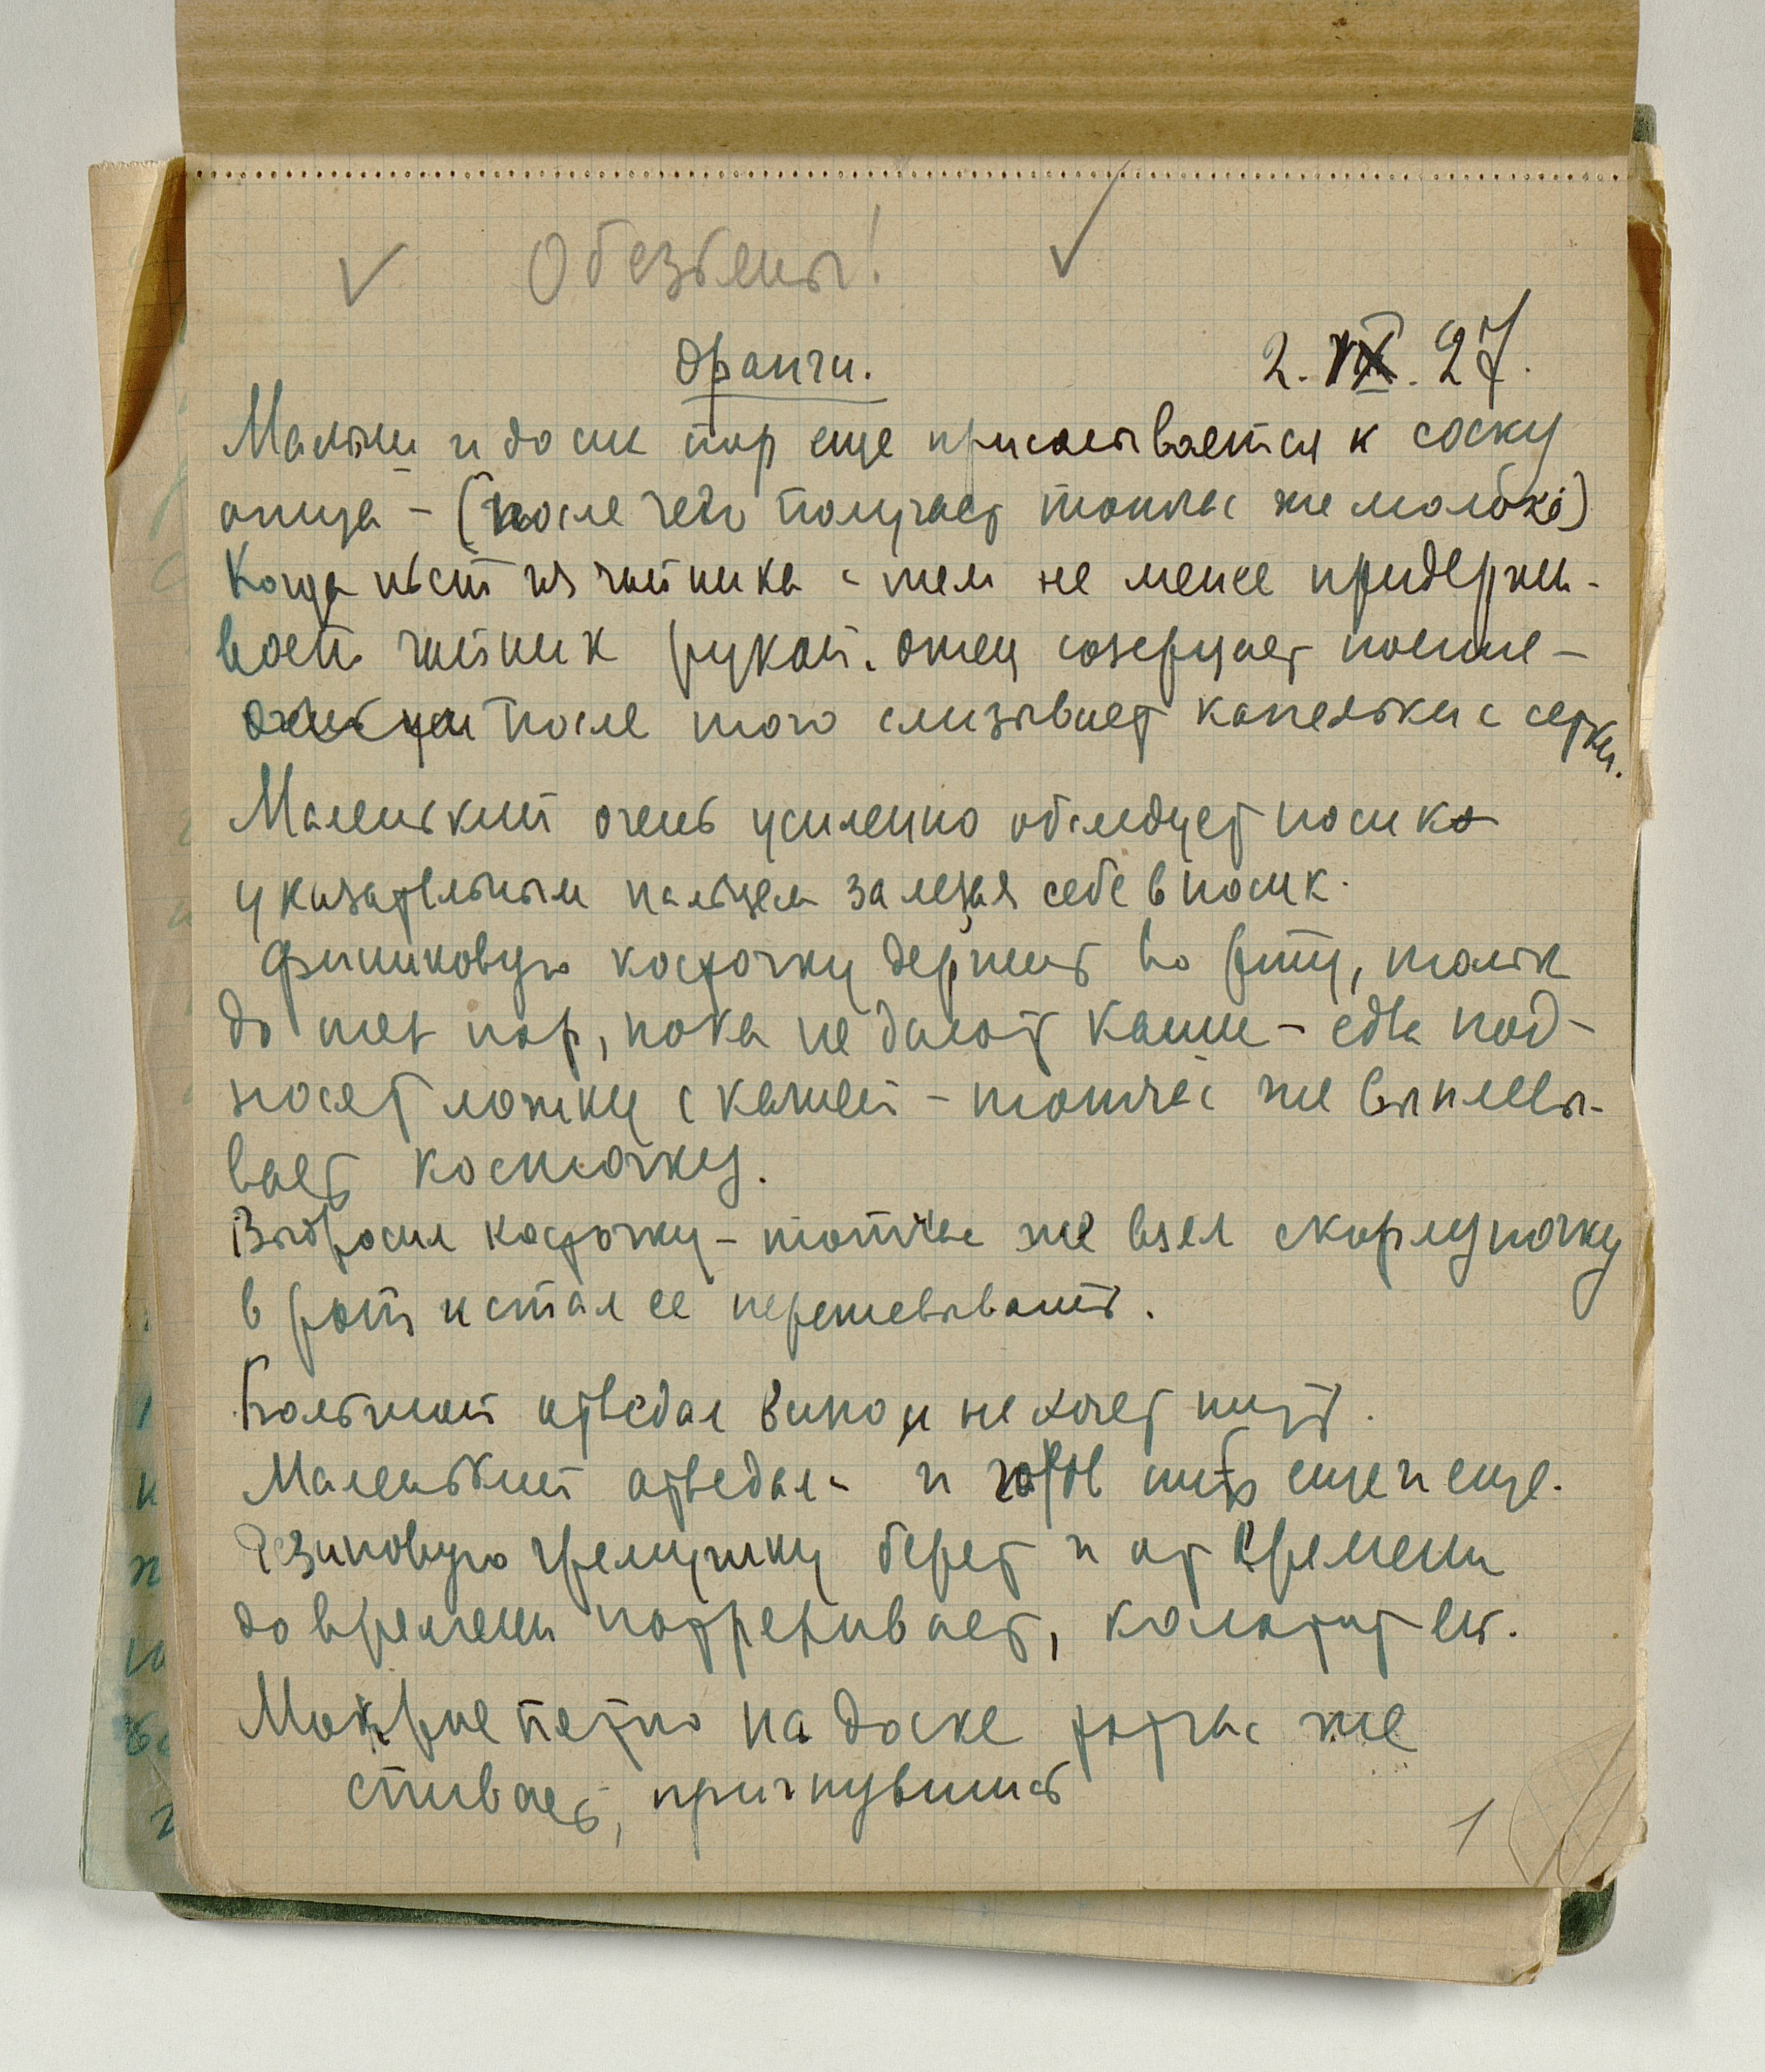 Обезьяны!
Оранги.
2. IX. 27.
Малыш и до сих пор еще присасывается к соску
отца – (после чего получает тотчас же молоко)
Когда пьет из чайника – тем не менее придержи-
вает чайник рукой. Отец созерцает
после того слизывает капельки с сетки.
Маленький очень усиленно обследует носик
указательным пальцем залезая себе в носик.
Финиковую косточку держит во рту, только
до тех пор, пока не дают каши – едва под-
носят ложку с кашей – тотчас же выплевы-
вает косточку.
Выбросил косточку – тотчас же взял скорлупочку
в рот и стал ее пережевывать.
Большой отведал вино и не хочет пить.
Маленький отведал – и готов пить еще и еще.
Резиновую гремушку берет и от времени
до времени потряхивает, колотит ею.
Мокрое пятно на доске тотчас же
спивает, пригнувшись
1